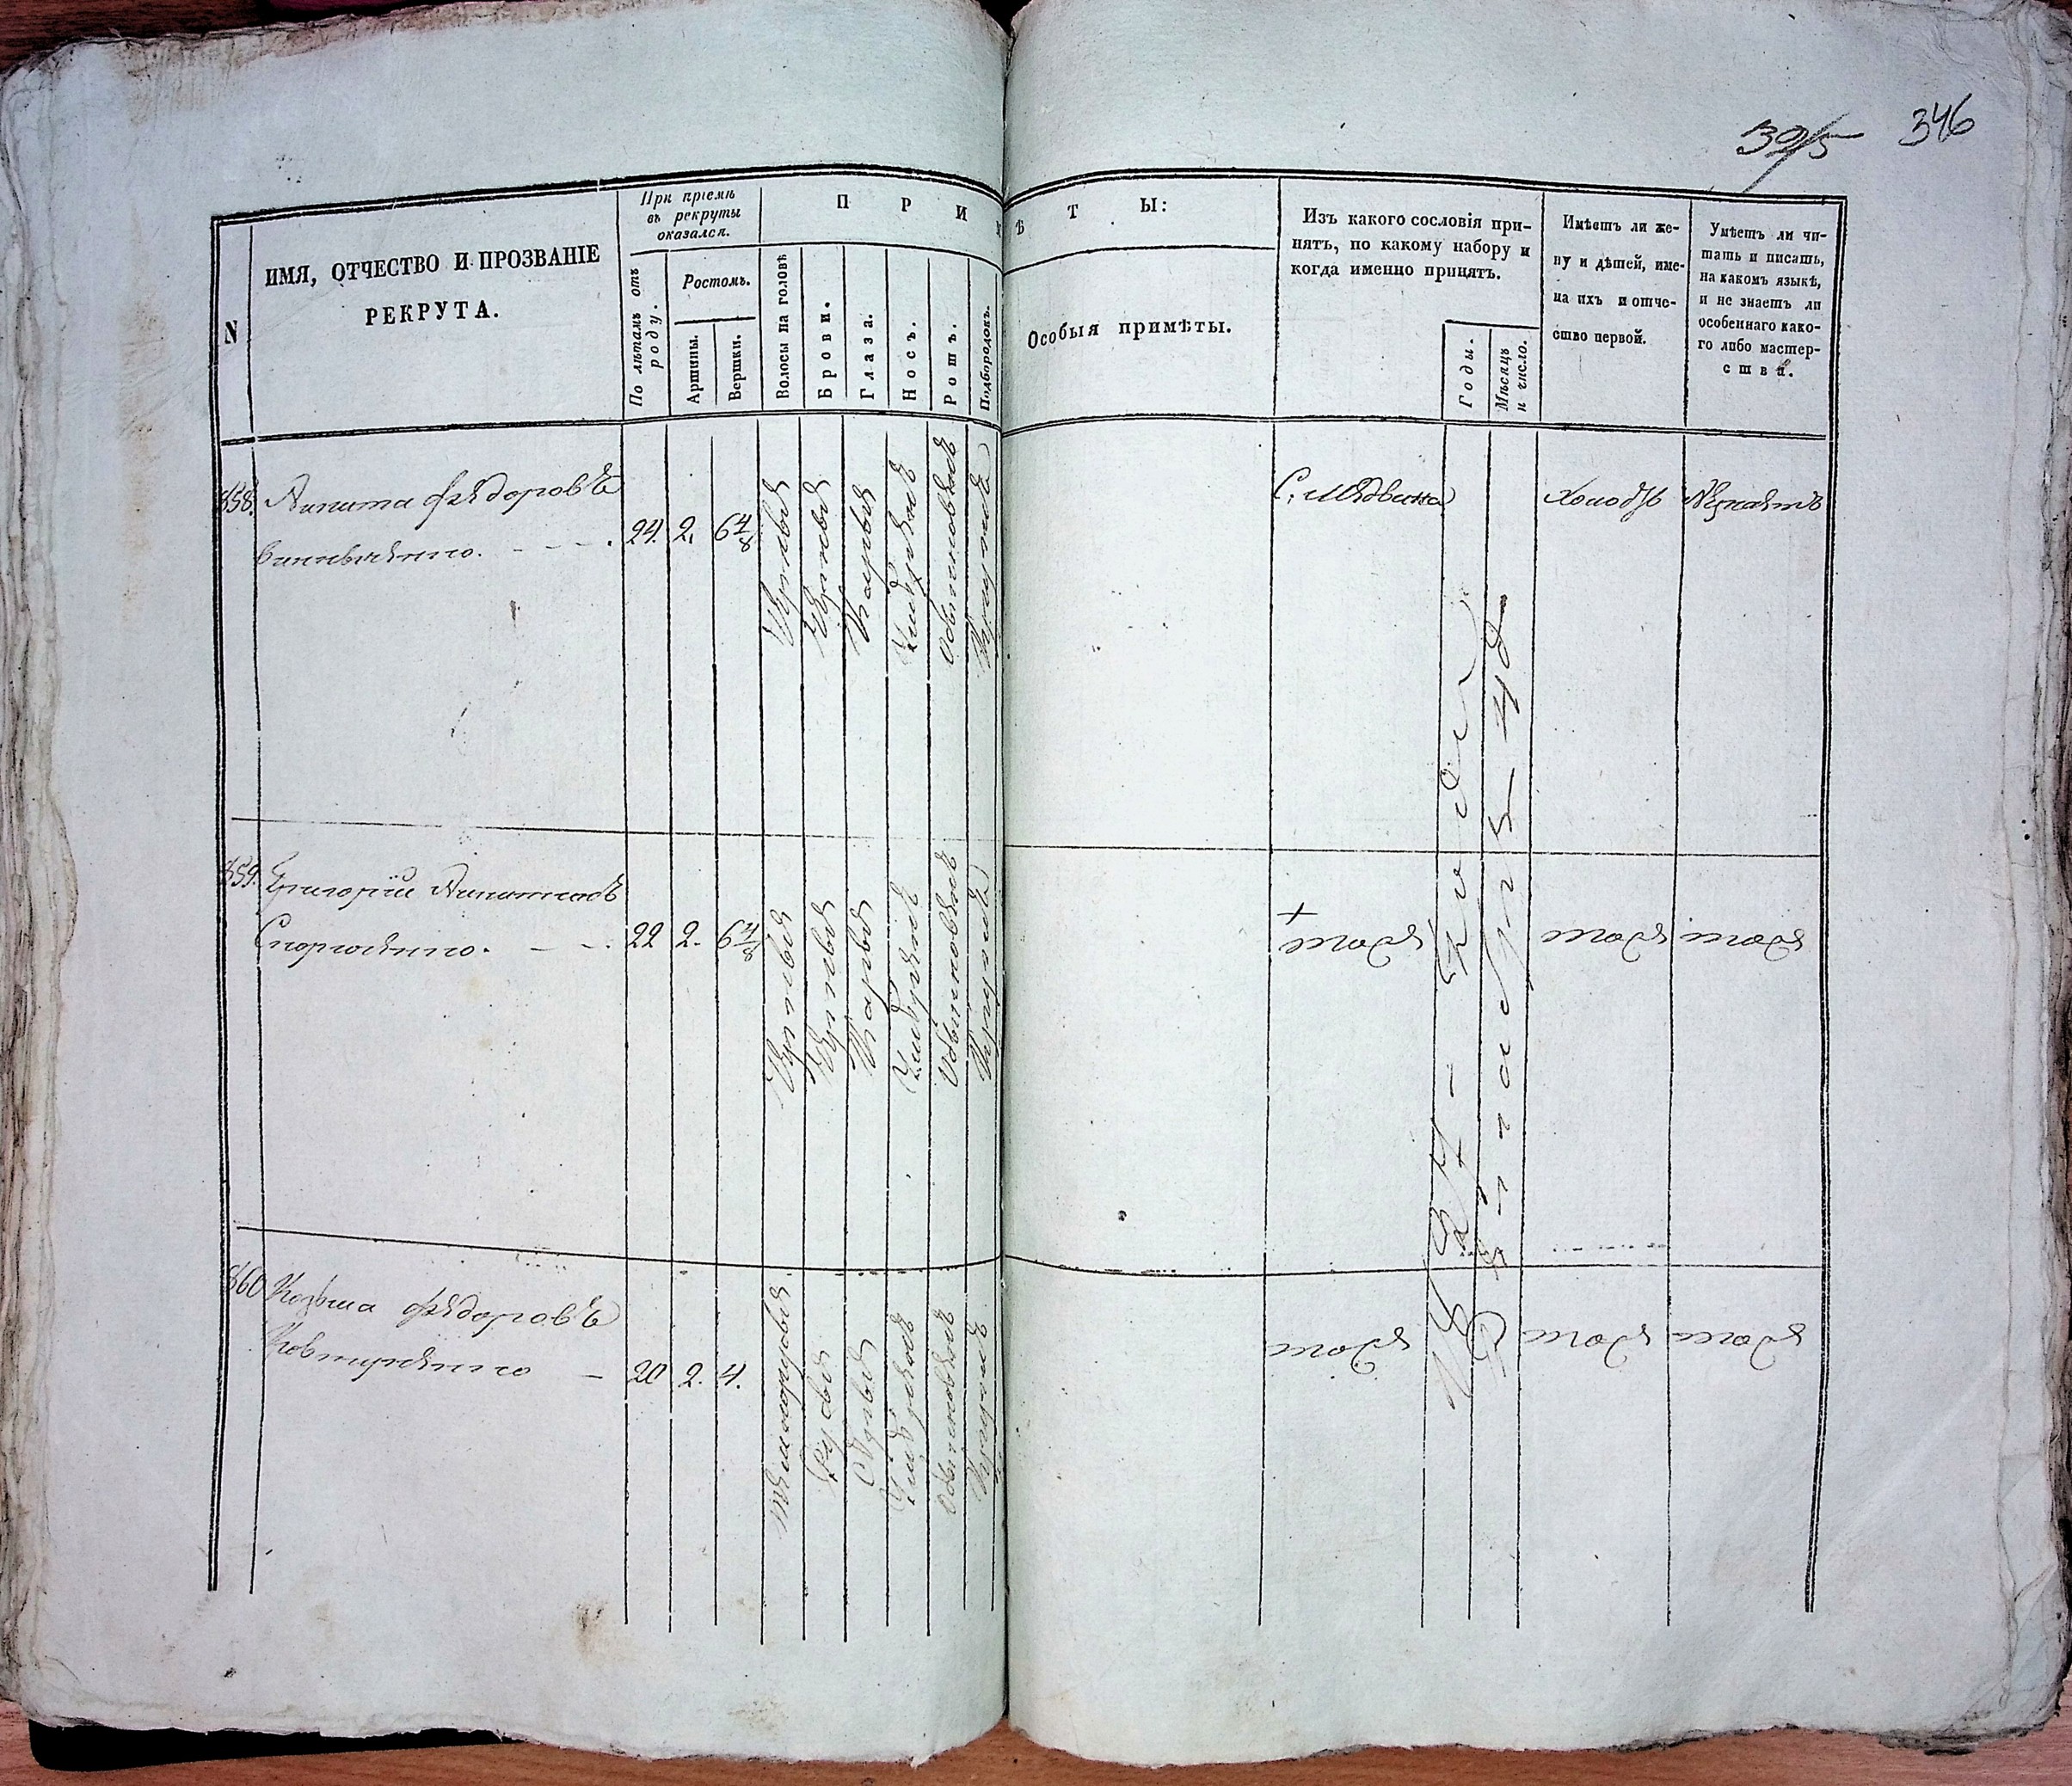 346
N
ИМЯ, ОТЧЕСТВО И ПРОЗВАНІЕ
РЕКРУТА.
При пріемѣ
въ рекруты
оказался.
По лѣтамъ отъ
роду.
Ростомъ.
Аршины.
Вершки.
ПРИ
ѢТЫ:
Волосы на головѣ
Брови.
Глаза.
Носъ.
Ротъ.
Подбородокъ.
Особыя примѣты.
Изъ какого сословія при-
нятъ, по какому набору и
когда именно принятъ.
Годы.
Мѣсяцъ
и число.
Имѣетъ ли же-
ну и дѣтей, име-
на ихъ и отче-
ство первой.
Умѣетъ ли чи-
тать и писать,
на какомъ языкѣ,
и не знаетъ ли
особеннаго како-
го либо мастер-
ства.
858. Никита Федоровъ
24. 2. 6 4/8
Черныя
Черныя
Карыя
Умѣренъ
Обыкновенъ
Круглъ
С. Медвина
Холостъ
Незнаетъ
859. Григорій Никитинъ
22 2. 6 4/8
Черныя
Черныя
Карыя
Умѣренъ
Обыкновенъ
Круглъ
тоже
тоже
тоже
860 Козьма Федоровъ
Ковтуненко
20 2. 4.
темнорусыя
Русыя
Сѣрыя
Умѣренъ
Обыкновенъ
Круглъ
тоже
тоже
тоже